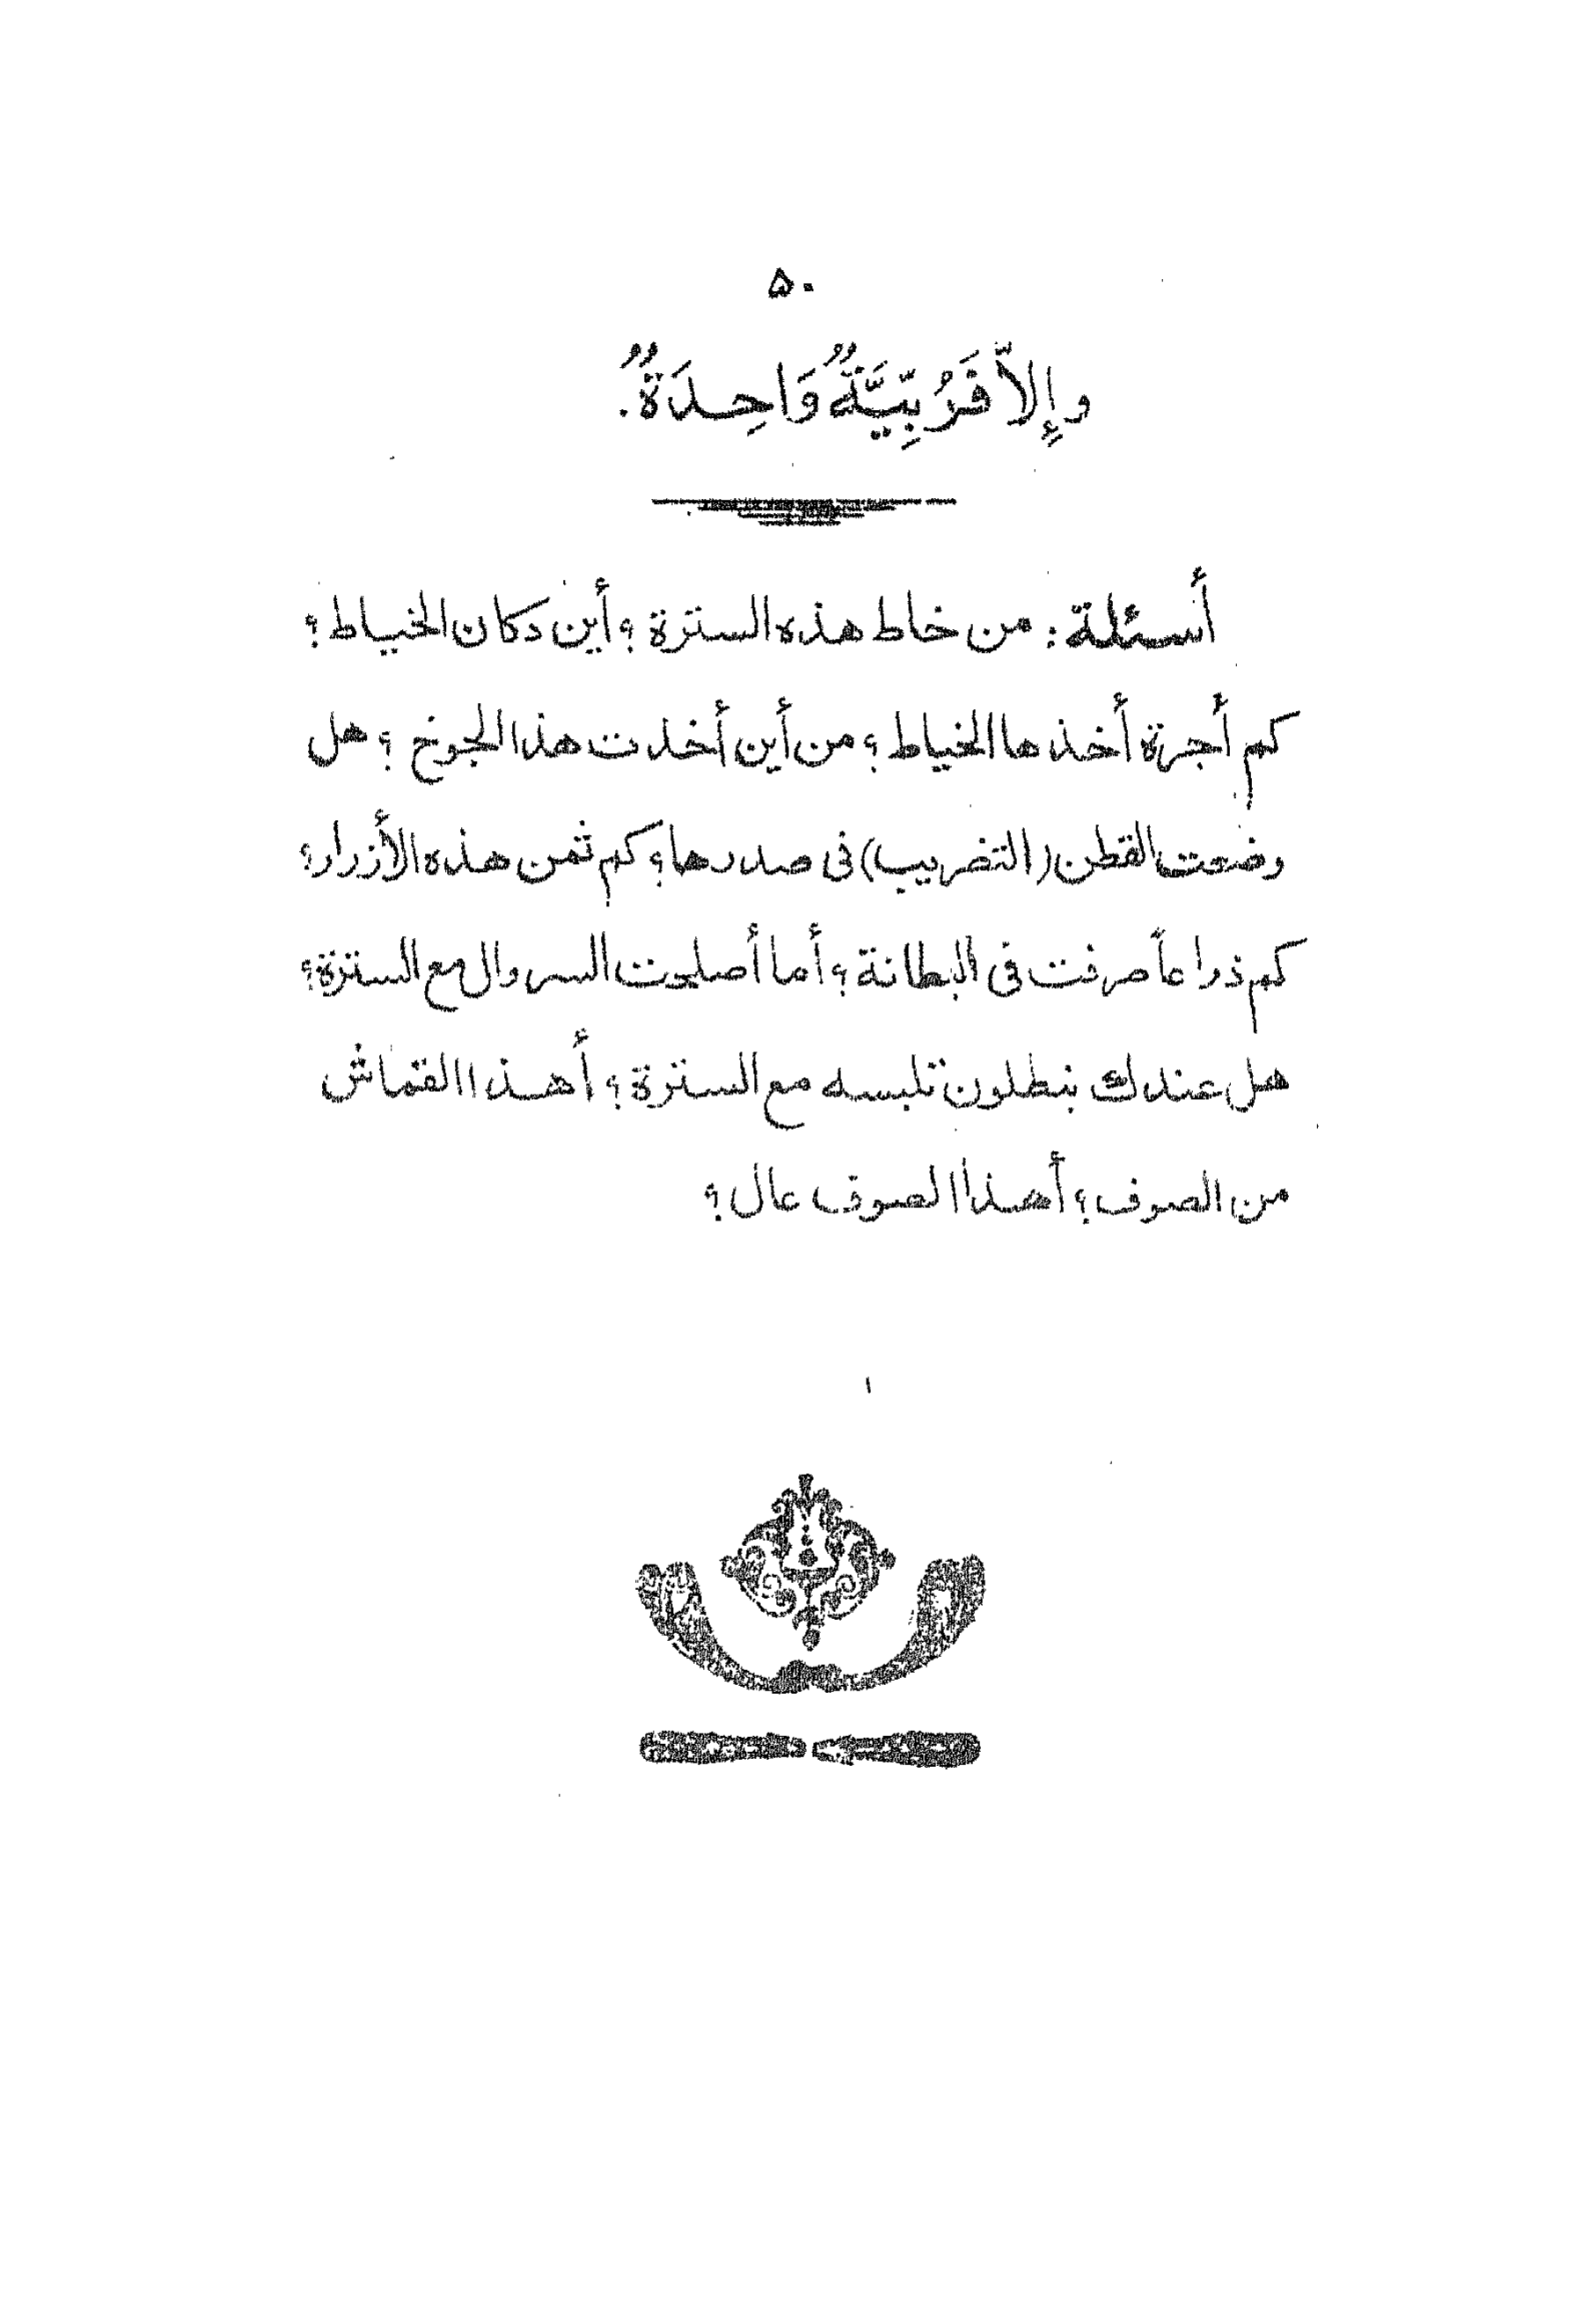 ۵۰
وإِلاّ فَرُبِّيَّةٌ وَاحِدَةٌ.
أسئلة: من خاط هذه السترة ؟ أين دكان الخياط ؟
كم أجرة أخذها الخياط ؟ من أين أخذت هذا الجوخ ؟ هل
وضعت القطن (التضريب) فى صدرها؟ كم ثمن هذه الأزرار؟
كم ذراعاً صرفت فى البطانة ؟ أما أصلحت السروال مع السترة؟
هل عندك بنطلون تلبسه مع السترة ؟ أهذا القماش
من الصوف ؟ أهذا الصوف عال ؟